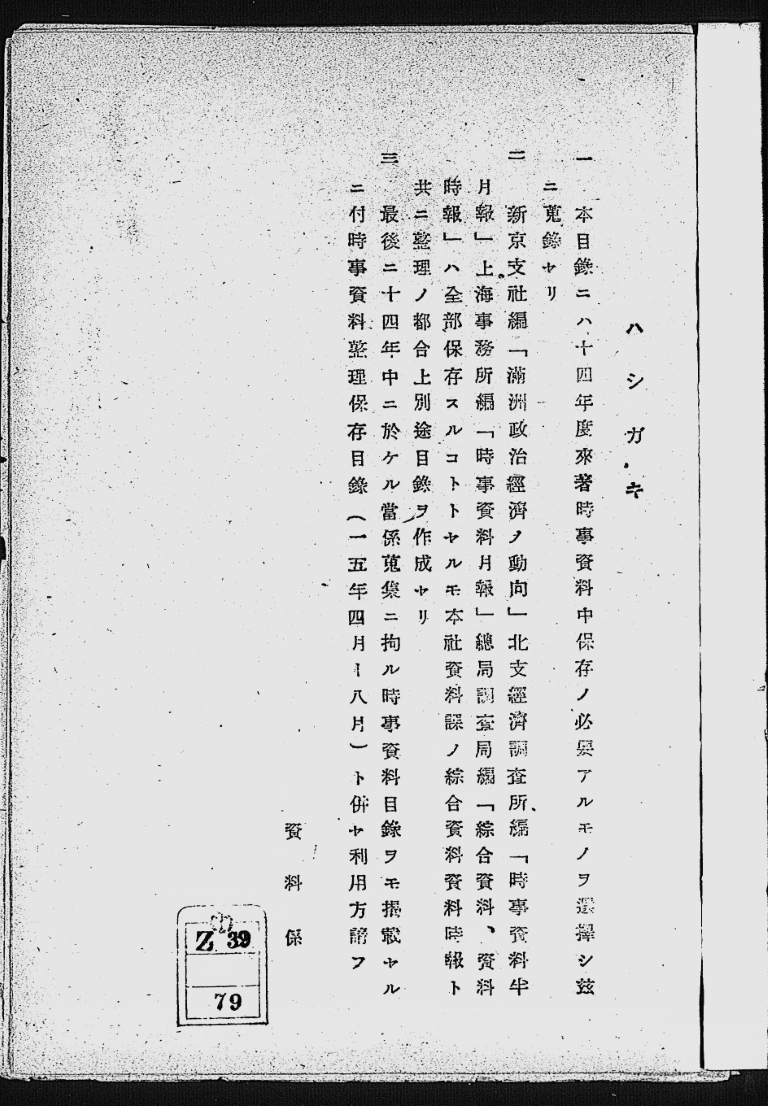 ハシガキ
一 本目錄ニハ十四年度來著時事資料中保存ノ必要アルモノヲ選擇シ茲
ニ蒐錄セリ
二 新京支社編「滿洲政治經濟ノ動向」北支經濟調査所編「時事資料半
月報」上海事務所編「時事資料月報」總局調査局編「綜合資料、資料
時報」ハ全部保存スルコトトセルモ本社資料課ノ綜合資料資料時報ト
共ニ整理ノ都合上別途目錄ヲ作成セリ
三 最後ニ十四年中ニ於ケル當係蒐集ニ拘ル時事資料目錄ヲモ揭載セル
ニ付時事資料整理保存目錄(一五年四月ー八月)ト併セ利用方諳フ
資料係
Z 39
79